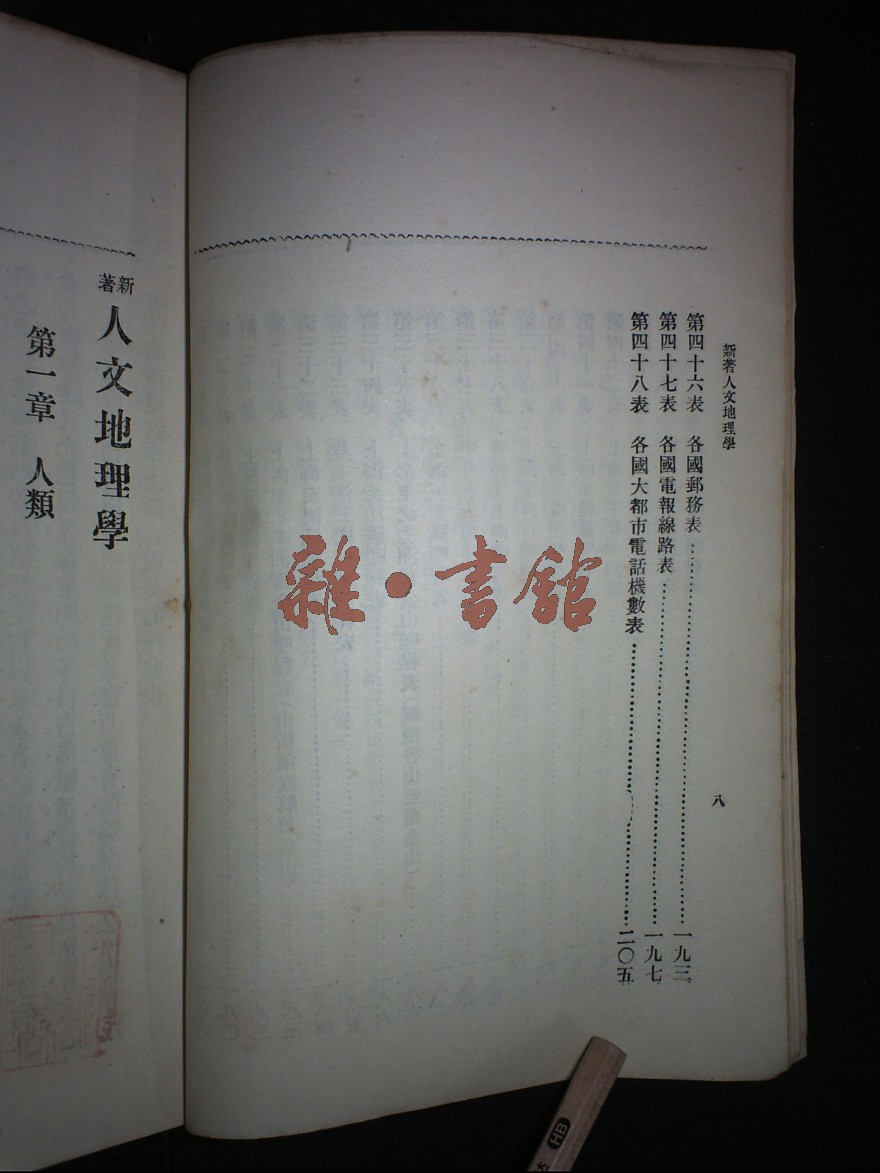 新著人文地理學
第四十六表　各國郵務表……一九三
第四十七表　各國電報線路表……一九七
第四十八表　各國大都市電話機數表……二〇五
八
新著
人文地理學
第一章　人類
雜·書館
HB